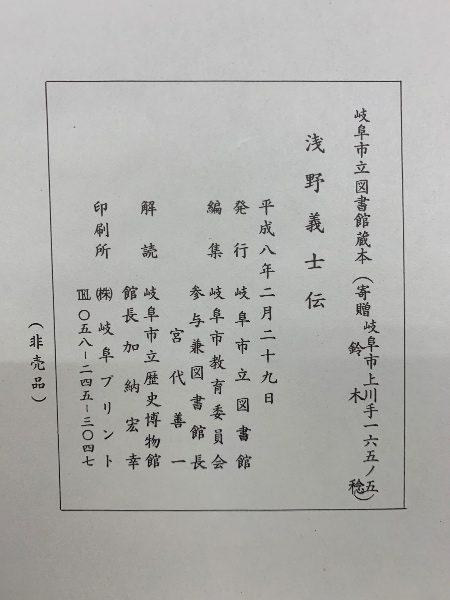 岐阜市立図書館蔵本(寄贈 岐阜市上川手一六五ノ五
鈴木 稔)
浅野義士伝
平成八年二月二十九日
発行 岐阜市立図書館
編集 岐阜市教育委員会
参与兼図書館長
宮代善一
解読 岐阜市立歴史博物館
館長 加納宏幸
印刷所 ㈱岐阜プリント
℡〇五八-二四五-三〇四七
(非売品)